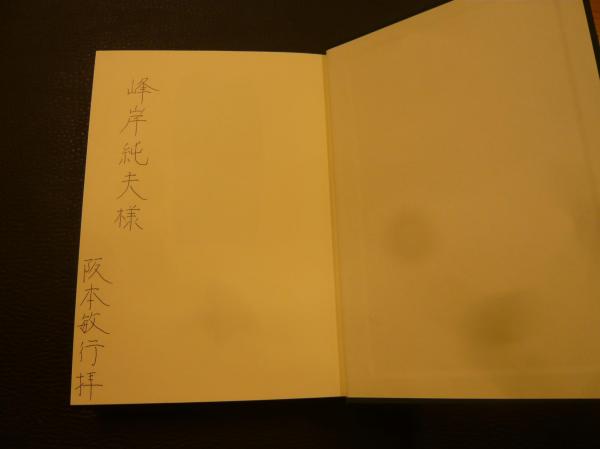 峰岸純夫様
阪本敏行拝